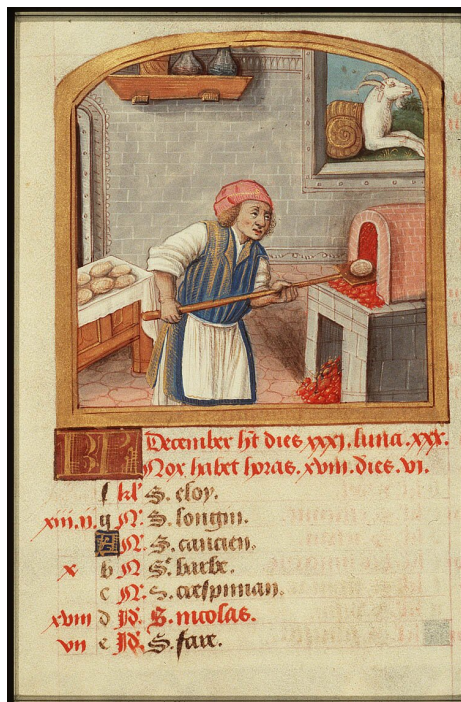 KL December h't dies xxxj. luna. xxx.
Nox habet horas. xviii. dies. vi.
f kl' S. eloy.
xiii. N. g N. S. longin.
A N. S. cancien.
x b N S. barbe.
c N. S. crespinian.
xviii d Id. S. nicolas.
vii e Id. S. fare.